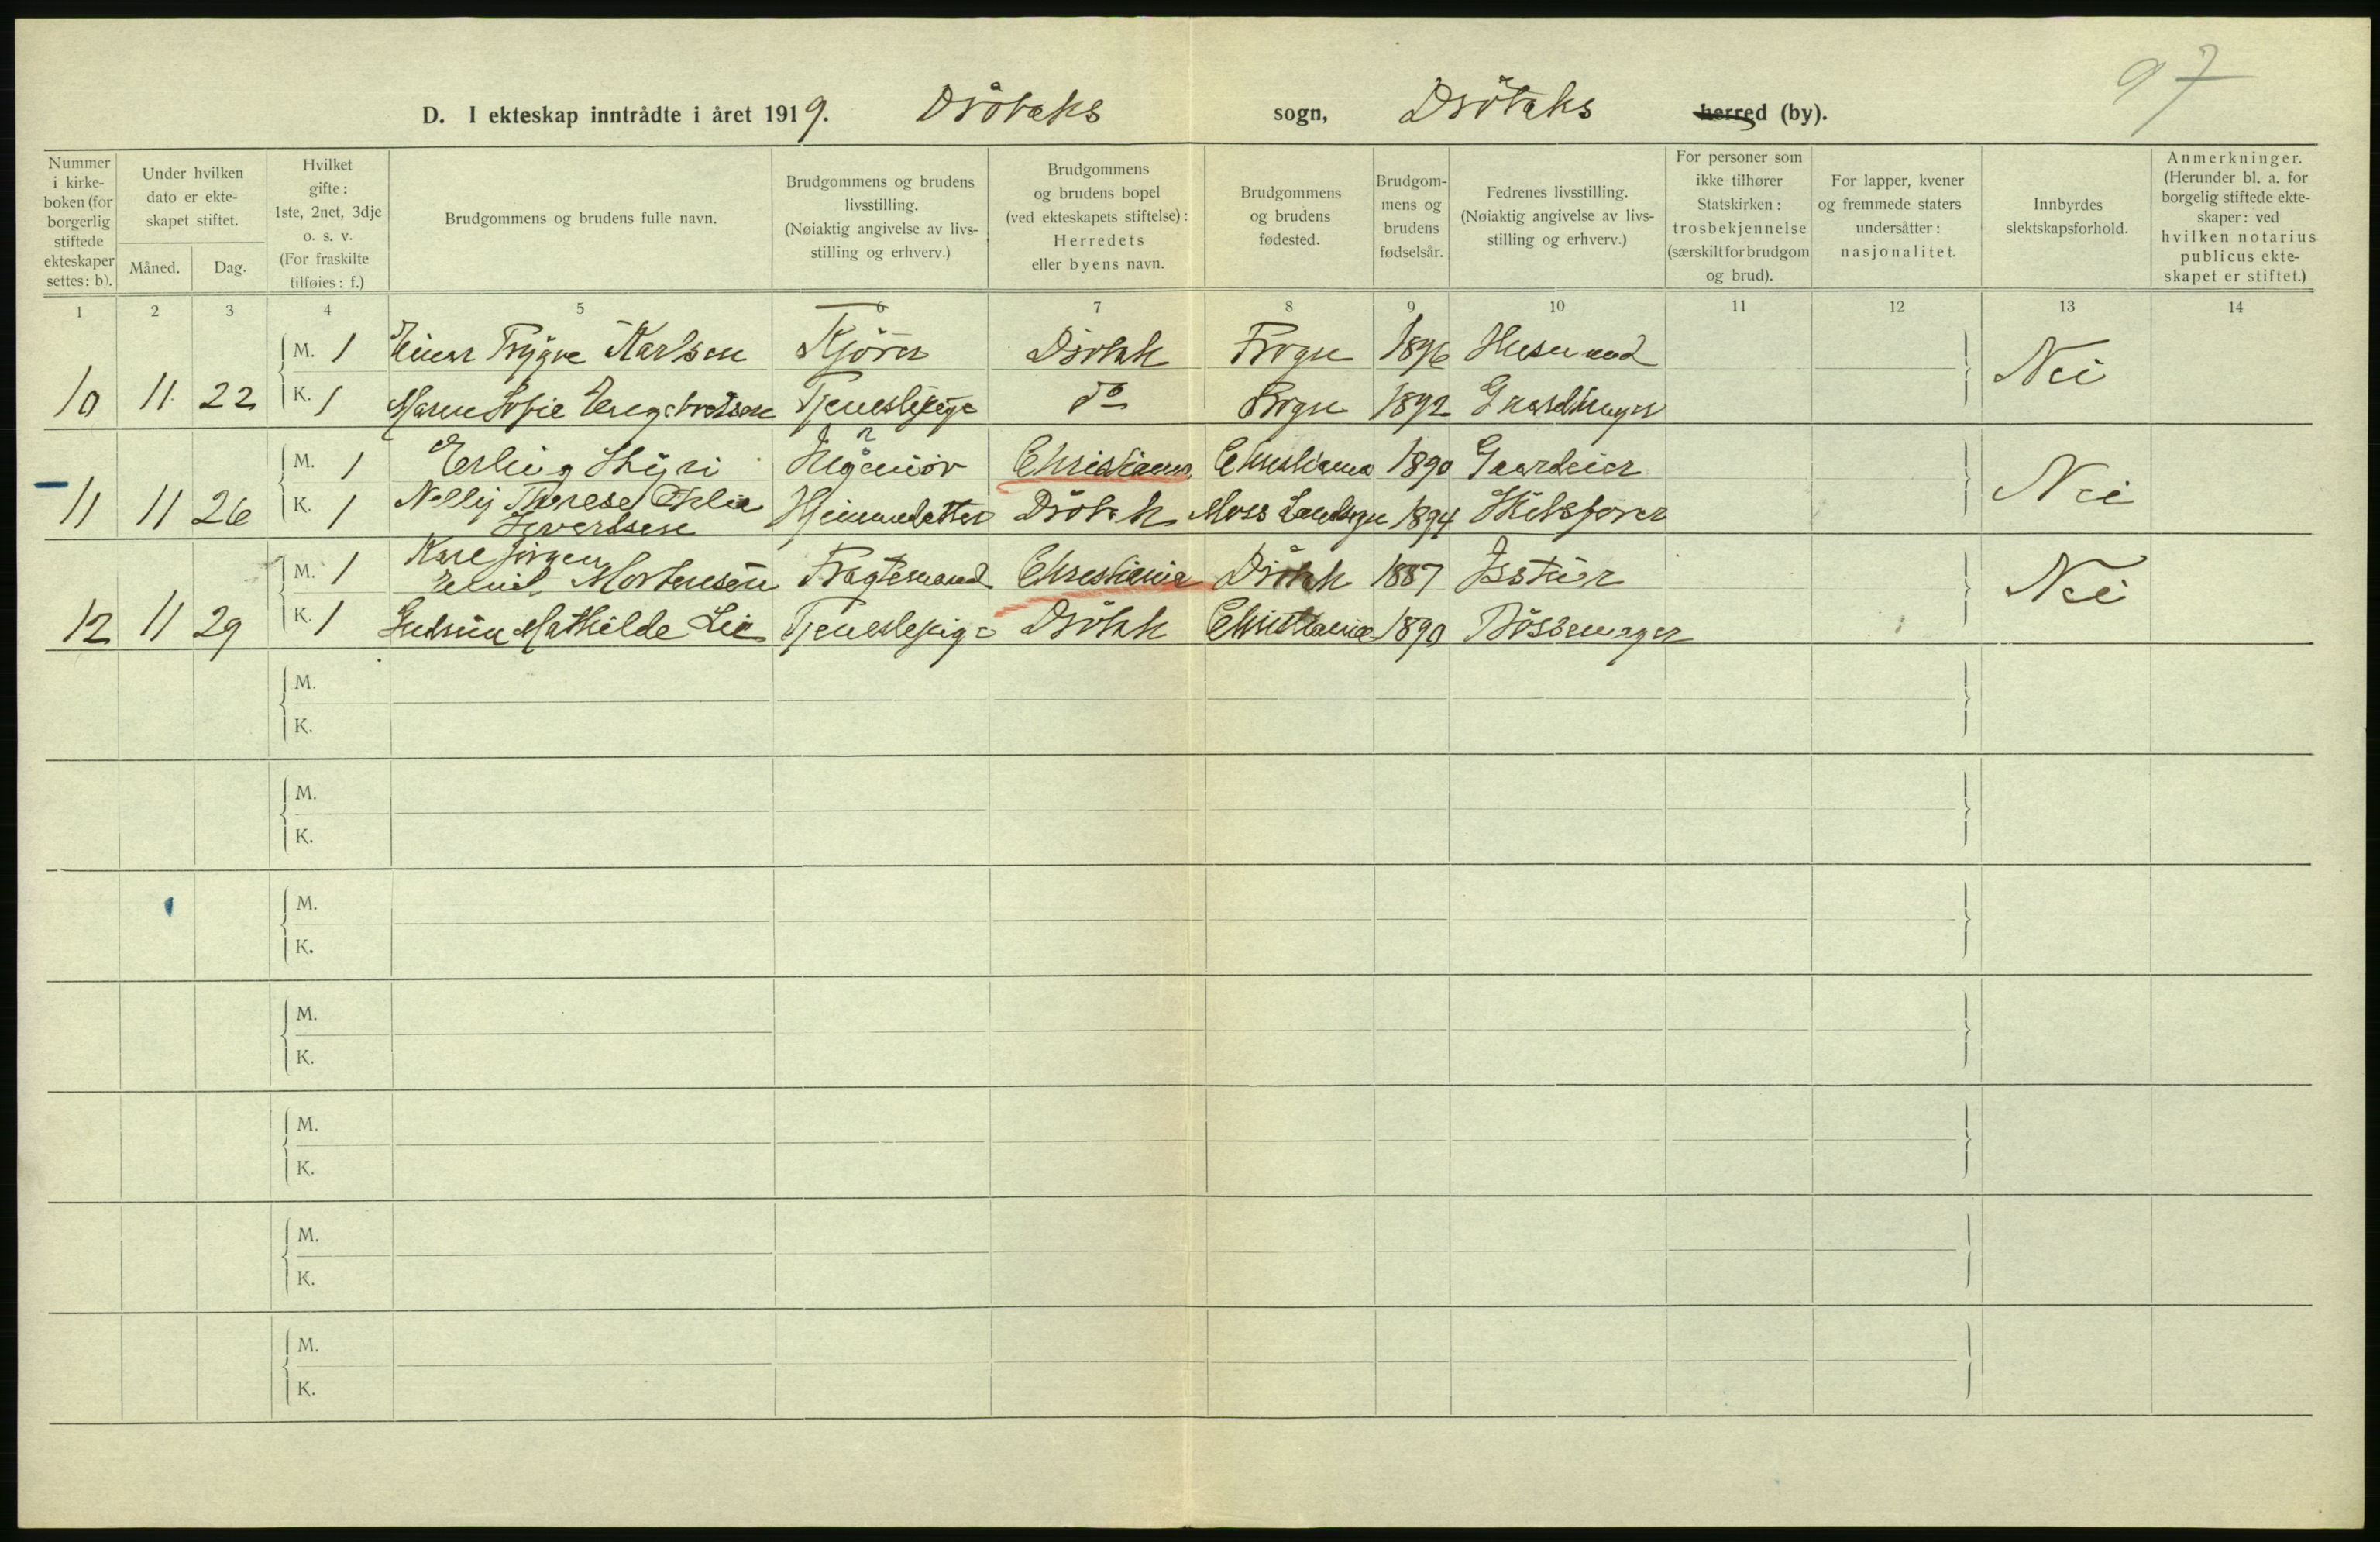 97
D. I ekteskap inntrådte i året 1919. Drøbaks sogn, Drøbaks herred (by).
Nummer i kirke-boken (for borgerlig stiftede ekteskaper settes: b).
Under hvilken dato er ekte-skapet stiftet.
Måned. Dag.
Hvilket gifte: 1ste, 2net, 3dje o. s. v. (For fraskilte tilføies: f.)
Brudgommens og brudens fulle navn.
Brudgommens og brudens livsstilling. (Nøiaktig angivelse av livs-stilling og erhverv.)
Brudgommens og brudens bopel (ved ekteskapets stiftelse): Herredets eller byens navn.
Brudgommens og brudens fødested.
Brudgom-mens og brudens fødselsår.
Fedrenes livsstilling. (Nøiaktig angivelse av livs-stilling og erhverv.)
For personer som ikke tilhører Statskirken: trosbekjennelse (særskilt for brudgom og brud).
For lapper, kvener og fremmede staters undersåtter: nasjonalitet.
Innbyrdes slektskapsforhold.
Anmerkninger. (Herunder bl. a. for borgelig stiftede ekte-skaper: ved hvilken notarius publicus ekte-skapet er stiftet.)
1 2 3 4 5 6 7 8 9 10 11 12 13 14
M. 1 Einar Trygve Karlsen Kjører Drøbak Frogn 1896 Husmand
10 11 22 K. 1 Maren Sofie Engebretsen Tjenestepige do Frogn 1892 Gaardbruger Nei
M. 1 Erling Styri Ingeniør Christiania Christiania 1890 Gaardeier
11 11 26 K. 1 Nelly Therese Othilie Syvertsen Hjemmedatter Drøbak Moss Landsogn 1894 Skibsfører Nei
M. 1 Karl Jørgen Emil Mortensen Fragtemand Christiania Drøbak 1887
12 11 29 K. 1 Gudrun Mathilde Lie Tjenestepige Drøbak Christiania 1890 Bøssemager Nei
M.
K.
M.
K.
M.
K.
M.
K.
M.
K.
M.
K.
M.
K.